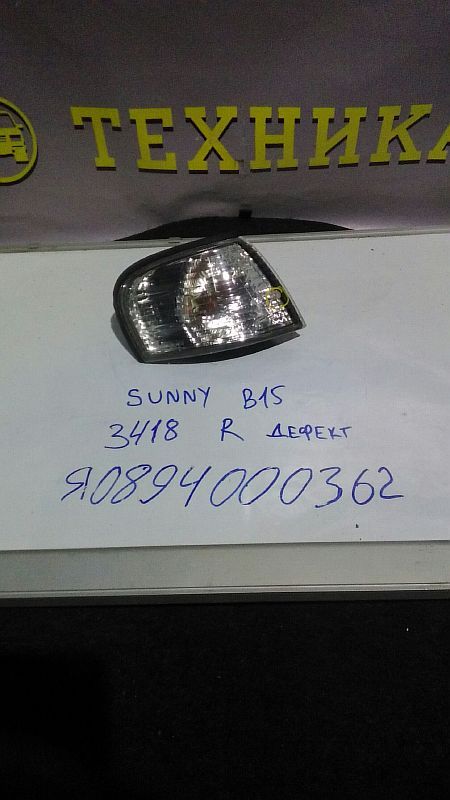 ТЕХНИКА
SUNNY B15
3418 R ДЕФЕКТ
Я0894000362